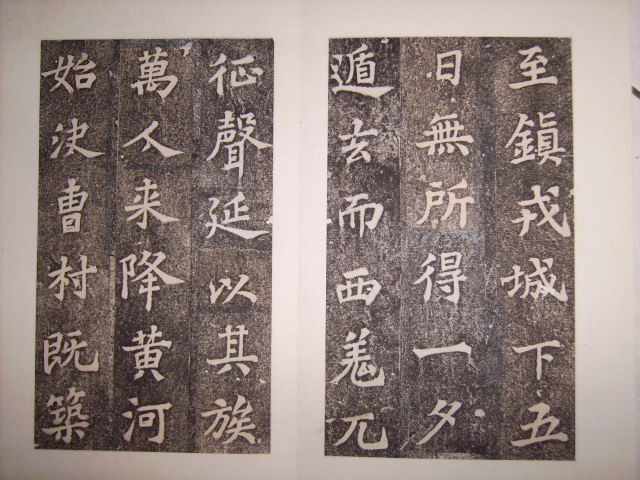 至鎮戎城下五
日無所得一夕
遁去而西羗兀
征聲延以其族
萬人来降黄河
始決曹村既築